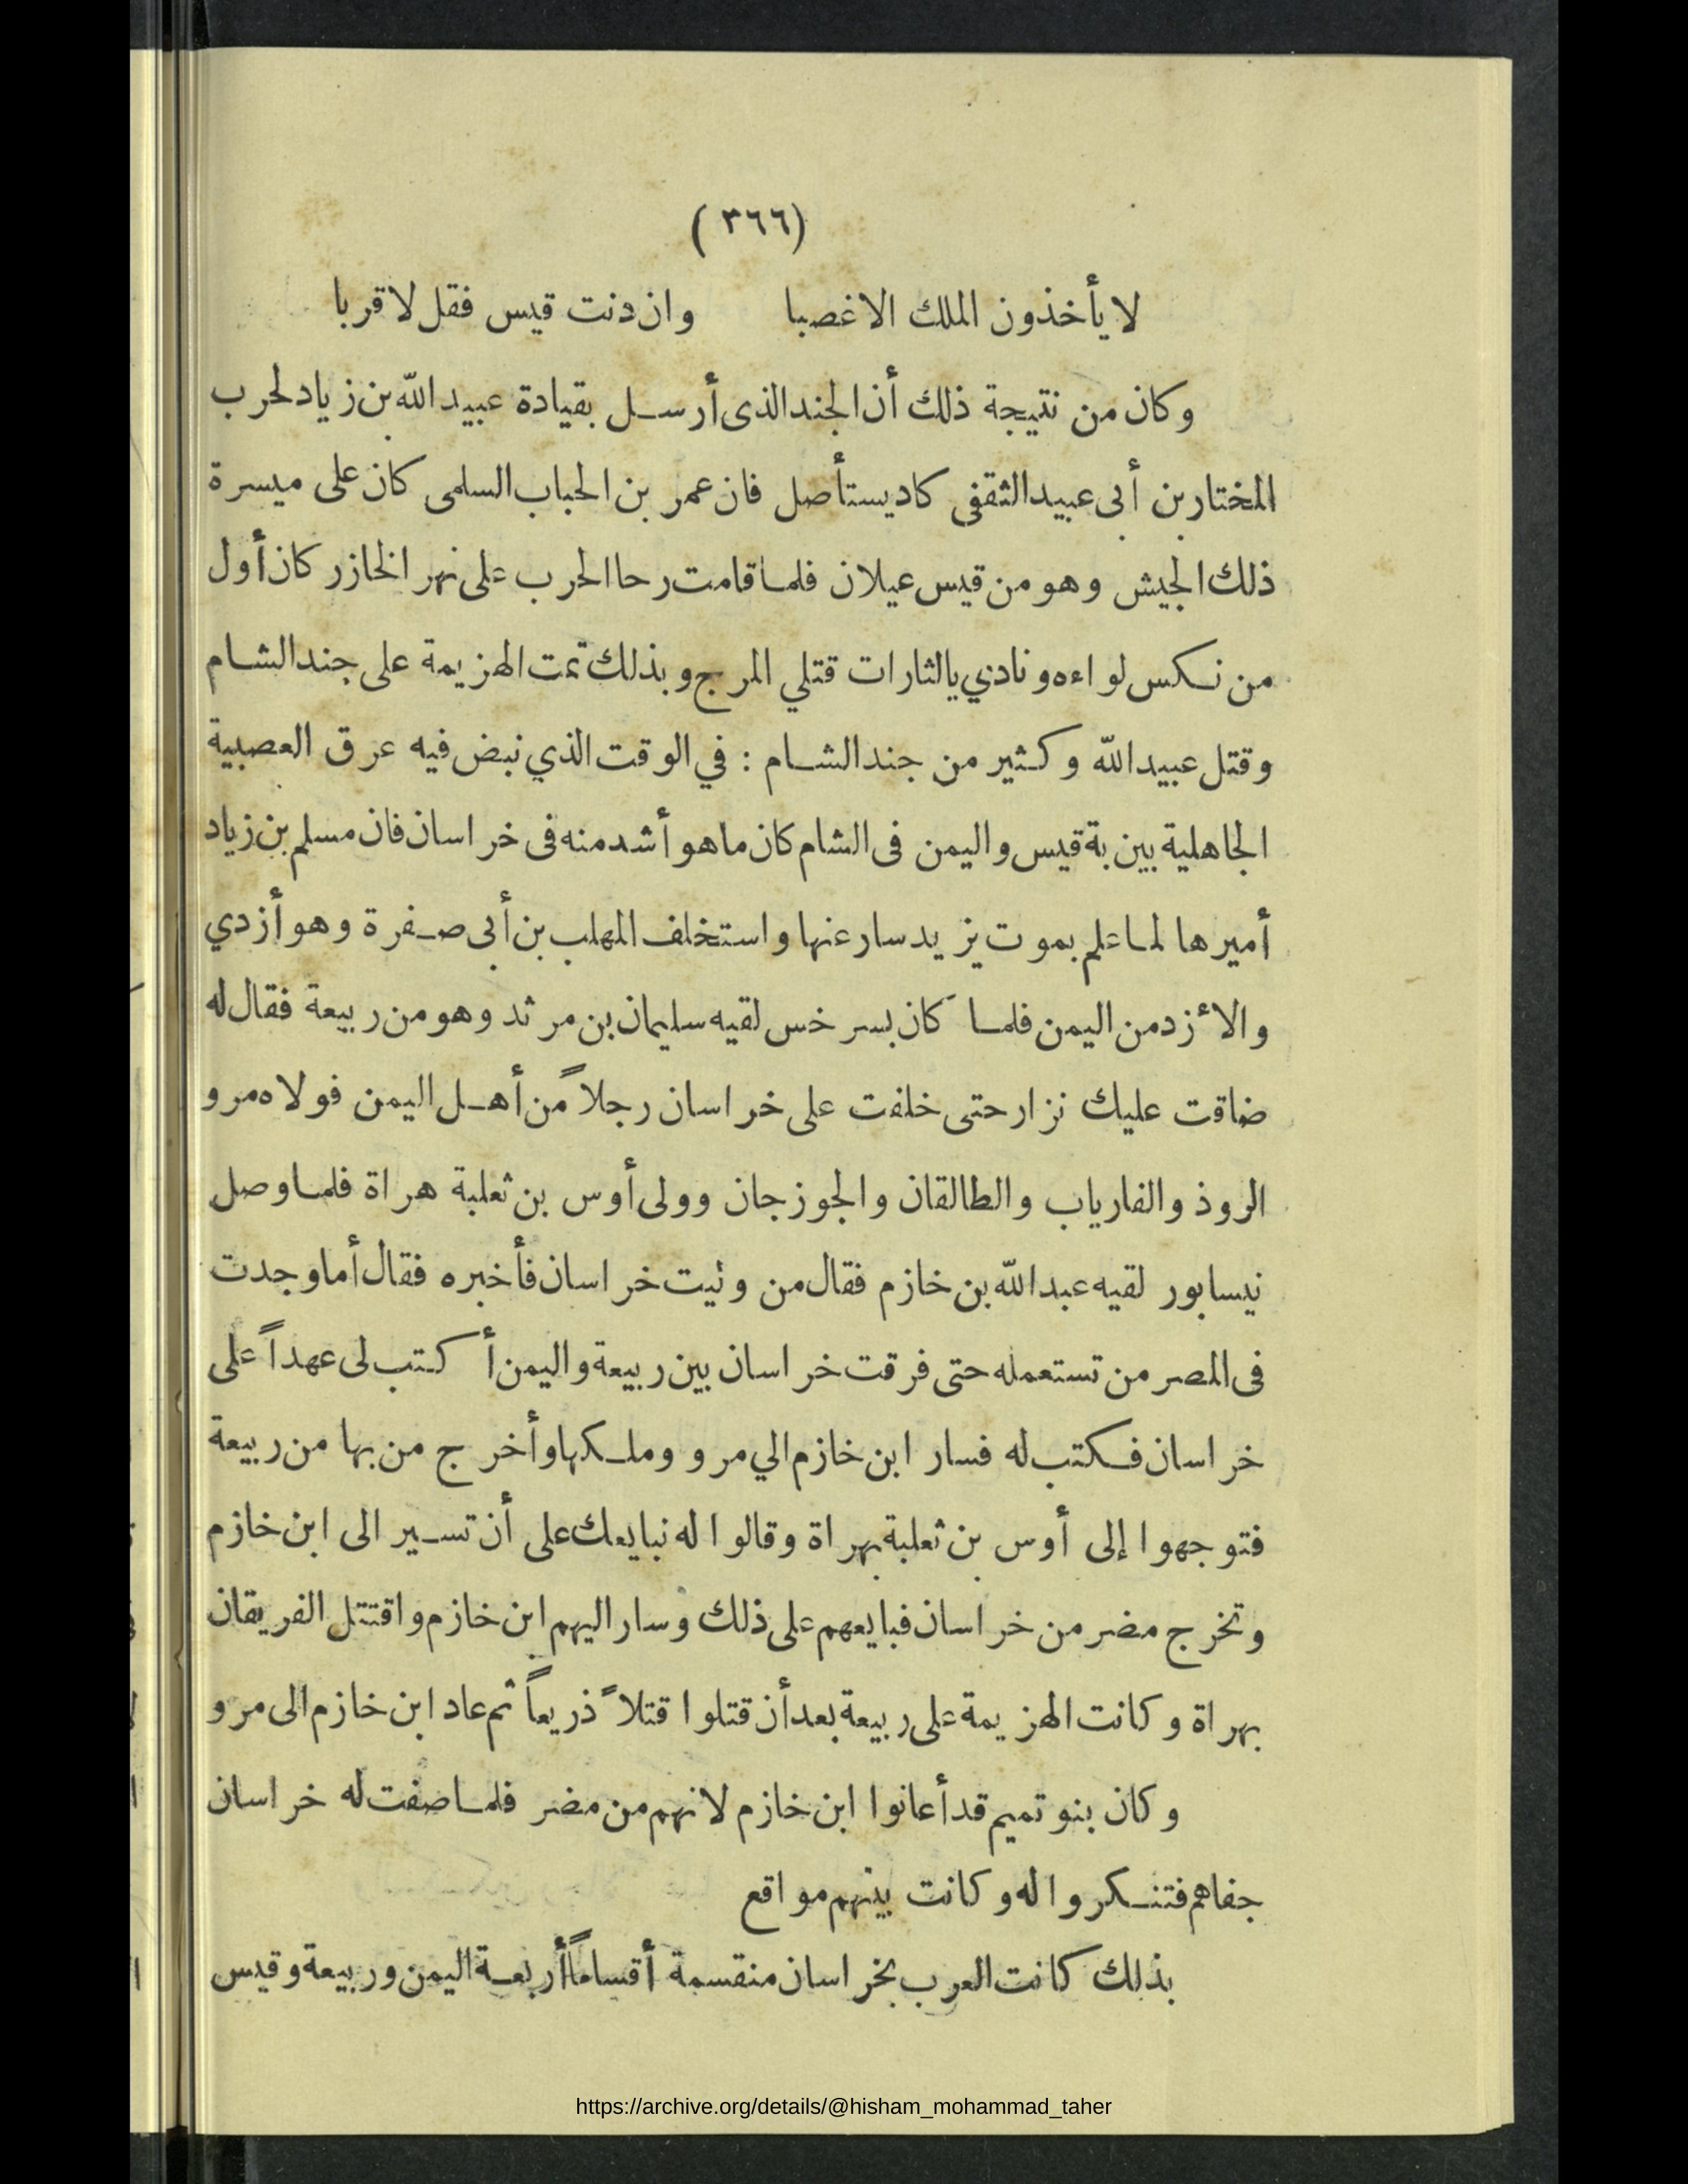 (٣٦٦)
لا يأخذون الملك الا غصبا وان دنت قيس فقل لا قربا
وكان من نتيجة ذلك أن الجند الذى أرسل بقيادة عبيد الله بن زياد لحرب
المختار بن أبى عبيد الثقفى كاد يستأصل فان عمر بن الحباب السلمى كان على ميسرة
ذلك الجيش وهو من قيس عيلان فلما قامت رحا الحرب على نهر الخازر كان أول
من نكس لواءه ونادي يالثارات قتلي المرج وبذلك تمت الهزيمة على جند الشام
وقتل عبيد الله وكثير من جند الشام : في الوقت الذي نبض فيه عرق العصبية
الجاهلية بين بة قيس واليمن فى الشام كان ماهو أشد منه فى خراسان فان مسلم بن زياد
أميرها لما علم بموت يزيد سار عنها واستخلف المهلب بن أبى صفرة وهو أزدي
والأزد من اليمن فلما كان بسرخس لقيه سليمان بن مرثد وهو من ربيعة فقال له
ضاقت عليك نزار حتى خلفت على خراسان رجلاً من أهل اليمن فولاه مرو
الروذ والفارياب والطالقان والجوزجان وولى أوس بن ثعلبة هراة فلما وصل
نيسابور لقيه عبد الله بن خازم فقال من وليت خراسان فأخبره فقال أما وجدت
فى المصر من تستعمله حتى فرقت خراسان بين ربيعة واليمن أكتب لى عهداً على
خراسان فكتب له فسار ابن خازم الي مرو وملكها وأخرج من بها من ربيعة
فتوجهوا إلى أوس بن ثعلبة بهراة وقالوا له نبايعك على أن تسير الى ابن خازم
وتخرج مضر من خراسان فبايعهم على ذلك وسار اليهم ابن خازم واقتتل الفريقان
بهراة وكانت الهزيمة على ربيعة بعد أن قتلوا قتلاً ذريعاً ثم عاد ابن خازم الى مرو
وكان بنو تميم قد أعانوا ابن خازم لانهم من مضر فلما صفت له خراسان
جفاهم فتنكروا له وكانت بينهم مواقع
بذلك كانت العرب بخراسان منقسمة أقساماً أربعة اليمن وربيعة وقيس
https://archive.org/details/@hisham_mohammad_taher